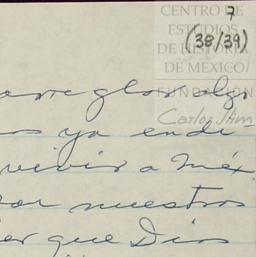 CENTRO DE
7
ESTUDIOS
(38/39)
DE HISTORIA
DE MÉXICO
FUNDACIÓN
Carlos Slim
arreglos alg
os ya en di-
vivir a Méx
por nuestros
er que Dios